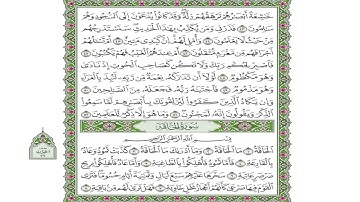 خَٰشِعَةً أَبْصَٰرُهُمْ تَرْهَقُهُمْ ذِلَّةٌ ۖ وَقَدْ كَانُوا۟ يُدْعَوْنَ إِلَى ٱلسُّجُودِ وَهُمْ
سَٰلِمُونَ ٤٣ فَذَرْنِى وَمَن يُكَذِّبُ بِهَٰذَا ٱلْحَدِيثِ ۖ سَنَسْتَدْرِجُهُم
مِّنْ حَيْثُ لَا يَعْلَمُونَ ٤٤ وَأُمْلِى لَهُمْ ۚ إِنَّ كَيْدِى مَتِينٌ ٤٥ أَمْ تَسْـَٔلُهُمْ
أَجْرًا فَهُم مِّن مَّغْرَمٍ مُّثْقَلُونَ ٤٦ أَمْ عِندَهُمُ ٱلْغَيْبُ فَهُمْ يَكْتُبُونَ ٤٧
فَٱصْبِرْ لِحُكْمِ رَبِّكَ وَلَا تَكُن كَصَاحِبِ ٱلْحُوتِ إِذْ نَادَىٰ
وَهُوَ مَكْظُومٌ ٤٨ لَّوْلَآ أَن تَدَٰرَكَهُۥ نِعْمَةٌ مِّن رَّبِّهِۦ لَنُبِذَ بِٱلْعَرَآءِ
وَهُوَ مَذْمُومٌ ٤٩ فَٱجْتَبَٰهُ رَبُّهُۥ فَجَعَلَهُۥ مِنَ ٱلصَّٰلِحِينَ ٥٠
وَإِن يَكَادُ ٱلَّذِينَ كَفَرُوا۟ لَيُزْلِقُونَكَ بِأَبْصَٰرِهِمْ لَمَّا سَمِعُوا۟
ٱلذِّكْرَ وَيَقُولُونَ إِنَّهُۥ لَمَجْنُونٌ ٥١ وَمَا هُوَ إِلَّا ذِكْرٌ لِّلْعَٰلَمِينَ ٥٢
سُورَةُ الحَاقَّةِ
بِسْمِ ٱللَّهِ ٱلرَّحْمَٰنِ ٱلرَّحِيمِ
ٱلْحَآقَّةُ ١ مَا ٱلْحَآقَّةُ ٢ وَمَآ أَدْرَىٰكَ مَا ٱلْحَآقَّةُ ٣ كَذَّبَتْ ثَمُودُ وَعَادٌۢ
بِٱلْقَارِعَةِ ٤ فَأَمَّا ثَمُودُ فَأُهْلِكُوا۟ بِٱلطَّاغِيَةِ ٥ وَأَمَّا عَادٌ فَأُهْلِكُوا۟ بِرِيحٍ
صَرْصَرٍ عَاتِيَةٍ ٦ سَخَّرَهَا عَلَيْهِمْ سَبْعَ لَيَالٍ وَثَمَٰنِيَةَ أَيَّامٍ حُسُومًا فَتَرَى
ٱلْقَوْمَ فِيهَا صَرْعَىٰ كَأَنَّهُمْ أَعْجَازُ نَخْلٍ خَاوِيَةٍ ٧ فَهَلْ تَرَىٰ لَهُم مِّنۢ بَاقِيَةٍ ٨